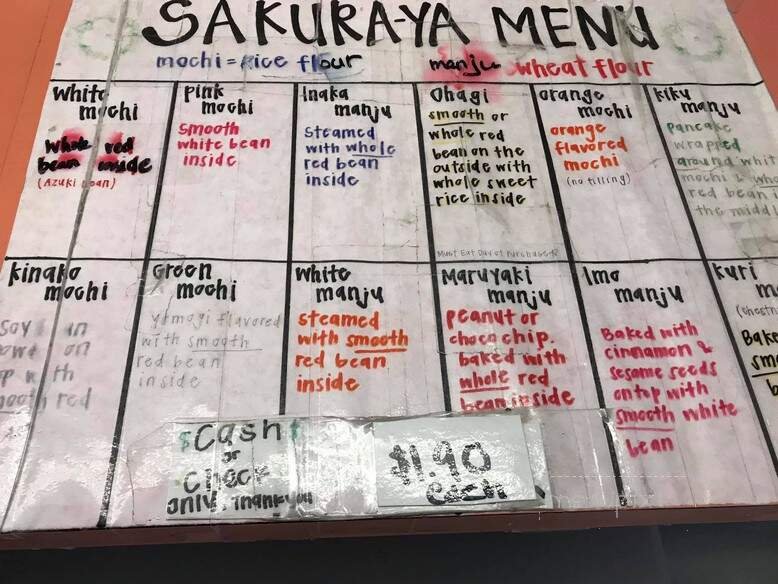 SAKURA-YA MENU
mochi = rice flour manju wheat flour
white
mochi
whole red
bean inside
(Azuki bean)
pink
mochi
smooth
white bean
inside
Inaka
manju
steamed
with whole
red bean
inside
Ohagi
smooth or
whole red
bean on the
outside with
whole sweet
rice inside
Must Eat Day of Purchase
orange
mochi
orange
flavored
mochi
(no filling)
kiku
manju
pancake
wrapped
around whit
mochi & who
red bean i
the middl
kinako
mochi
soy in
on
th
red
Green
mochi
yomogi flavored
with smooth
red bean
inside
white
manju
steamed
with smooth
red bean
inside
Maruyaki
manju
peanut or
choco chip.
baked with
whole red
bean inside
Imo
manju
Baked with
cinnamon &
sesame seeds
on top with
smooth white
bean
kuri
m
(chestn
Bake
smo
$Cash$
or
check
only, Thank you
$1.90
each